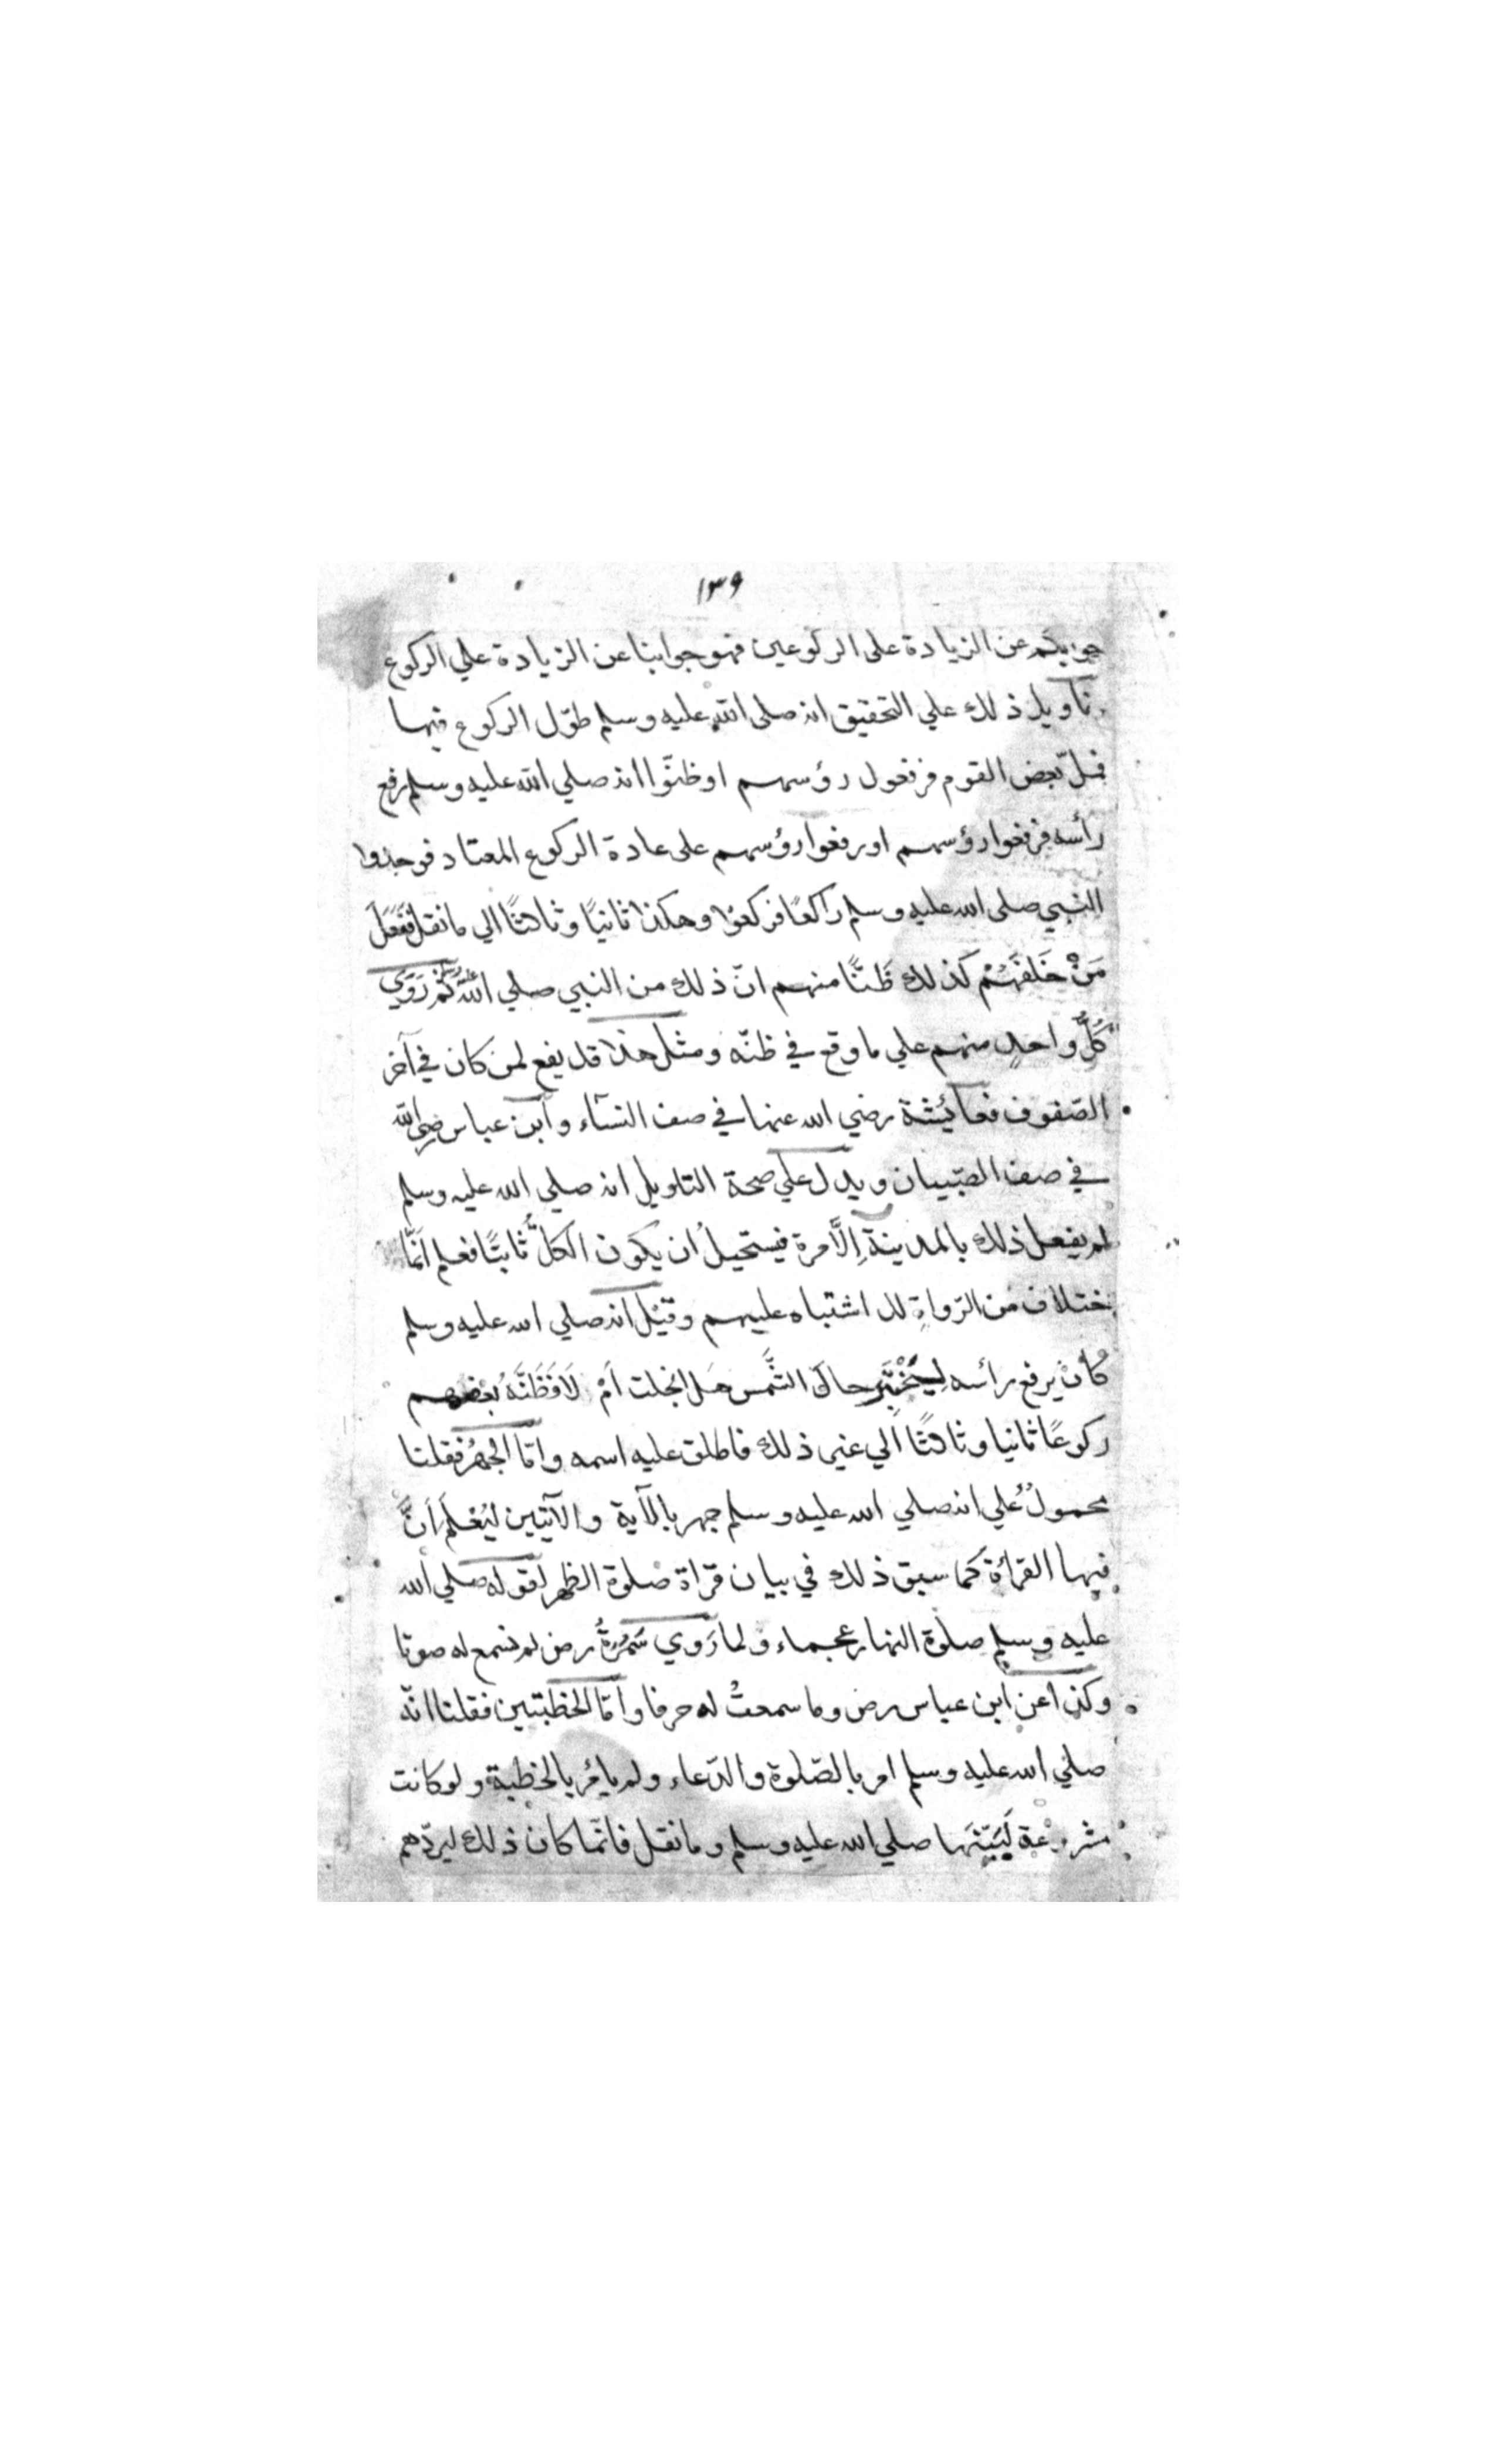 ١٣٩
جوابكم عن الزيادة على الركوعين فهو جوابنا عن الزيادة علي الركوع
وتأويل ذلك علي التحقيق انه صلى الله عليه وسلم طوّل الركوع فيها
فملّ بعض القوم فرفعوا رؤسهم او ظنّوا انه صلي الله عليه وسلم رفع
رأسه فرفعوا رؤسهم او رفعوا رؤسهم على عادة الركوع المعتاد فوجدوا
النبي صلى الله عليه وسلم راكعًا فركعوا وهكذا ثانيًا وثالثًا الي ما نقل فَفَعَلَ
مَنْ خَلفَهُمْ كذلك ظَنًّا منهم انّ ذلك من النبي صلي الله ثم رَوَي
كُلُّ واحدٍ منهم علي ما وقع في ظنّه ومثل هذا قد يقع لمن كان في آخر
الصّفوف فعائشة رضي الله عنها في صف النسّاء وابن عباس رضي الله
في صف الصّبيان ويدل علي صحة التاويل انه صلي الله عليه وسلم
لم يفعل ذلك بالمدينة اِلَّا مرة فيستحيلُ ان يكون الكلُّ ثابتًا فعلم انّما
ختلاف من الرّواة للاشتباه عليهم وقيْل انه صلي الله عليه وسلم
كانْ يرفع رأسه لِيَخْتَبِرَ حال الشّمس هل انجلت اَمْ لَا فَظَنَّهُ بعْضهم
ركوعًا ثانيا وثالثًا الي غير ذلك فاطلق عليه اسمه وامّا الجهْرُ فقلنا
محمولٌ علي انه صلي الله عليه وسلم جهر بالآية والآيتين ليُعْلَمَ اَنَّ
فيها القرأة كما سبق ذلك في بيان قراة صلوة الظهر لقوله صلي الله
عليه وسلم صلوة النهار عجماء ولما رَوي سَمُرَةُ رض لم نسمع له صوتا
وكذا عن ابن عباس رض وما سمعتُ له حرفا وامّا الخطبتين فقلنا انّه
صلي الله عليه وسلم امر بالصّلوة والدّعاء ولم يامُر بالخطبة ولو كانت
مشروعة لَبَيّنَها صلي الله عليه وسلم وما نقل فانّما كان ذلك ليردّهم